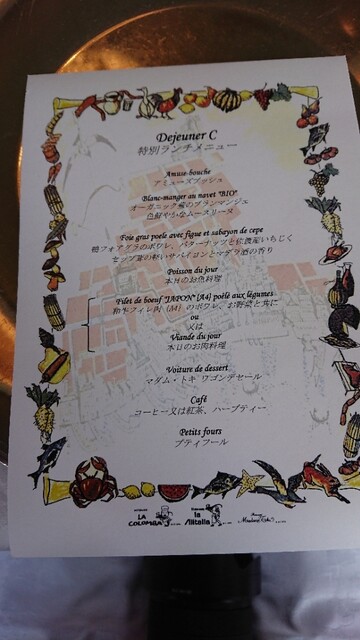 Dejeuner C
特別ランチメニュー
Amuse-bouche
アミューズブッシュ
Blanc-manger au navet "BIO"
オーガニック蕪のブランマンジェ
色鮮やかなムースリーヌ
Foie gras poele avec figue et sabayon de cepe
鴨フォアグラのポワレ、バターナッツと佐渡産いちじく
セップ茸の軽いサバイヨンとマデラ酒の香り
Poisson du jour
本日のお魚料理
Filet de boeuf "JAPON" [A4] poêlé aux légumes
和牛フィレ肉（A4）のポワレ、お野菜と共に
ou
又は
Viande du jour
本日のお肉料理
Voiture de dessert
マダム・トキ ワゴンデセール
Café
コーヒー又は紅茶、ハーブティー
Petits fours
プティフール
LA COLOMBA
la Alitalia